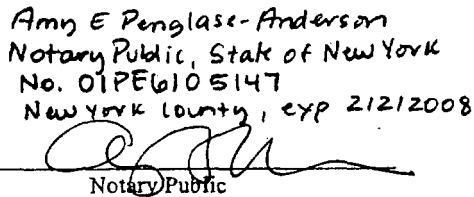 Amy E Penglase-Anderson
Notary Public, State of New York
No. 01PE6105147
New York County, exp 2/2/2008
Notary Public